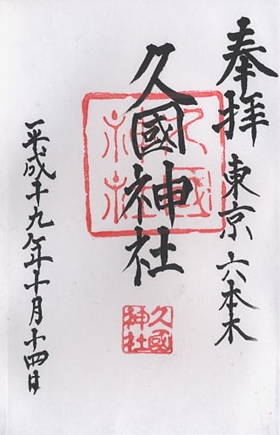 奉拝 東京 六本木
久國神社
久國神社
久國神社
平成十九年十月十四日